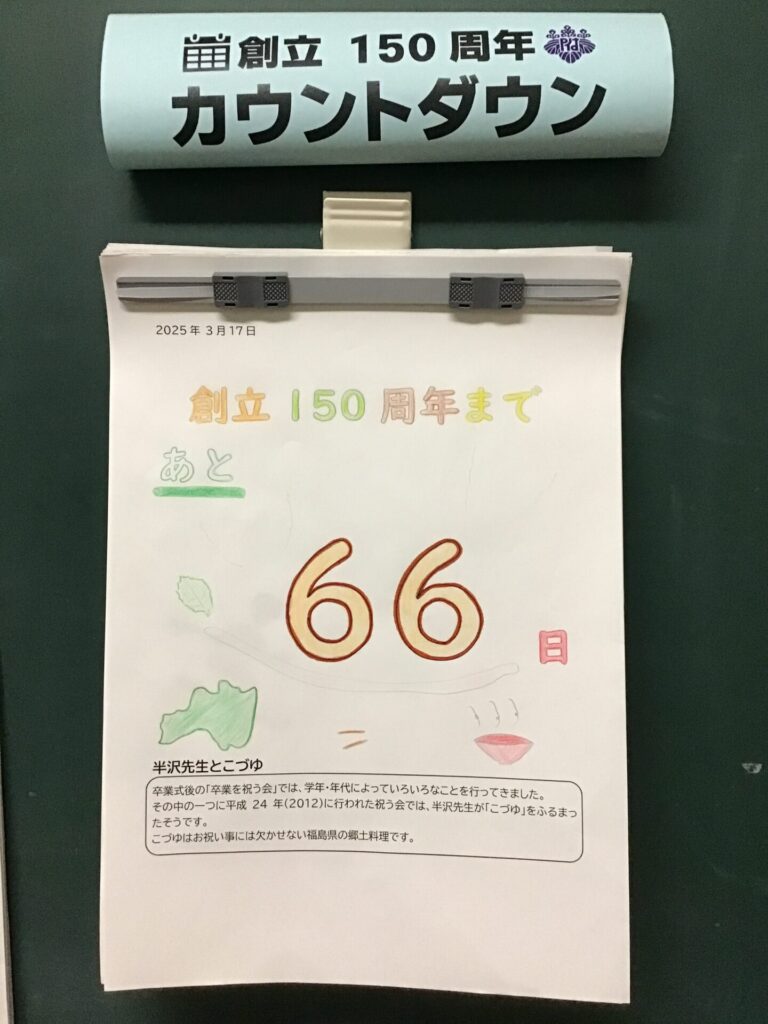 創立 150 周年
カウントダウン
2025年 3月17日
創立 150 周年まで
あと
66
日
半沢先生とこづゆ
卒業式後の「卒業を祝う会」では、学年・年代によっていろいろなことを行ってきました。
その中の一つに平成 24 年(2012)に行われた祝う会では、半沢先生が「こづゆ」をふるまっ
たそうです。
こづゆはお祝い事には欠かせない福島県の郷土料理です。